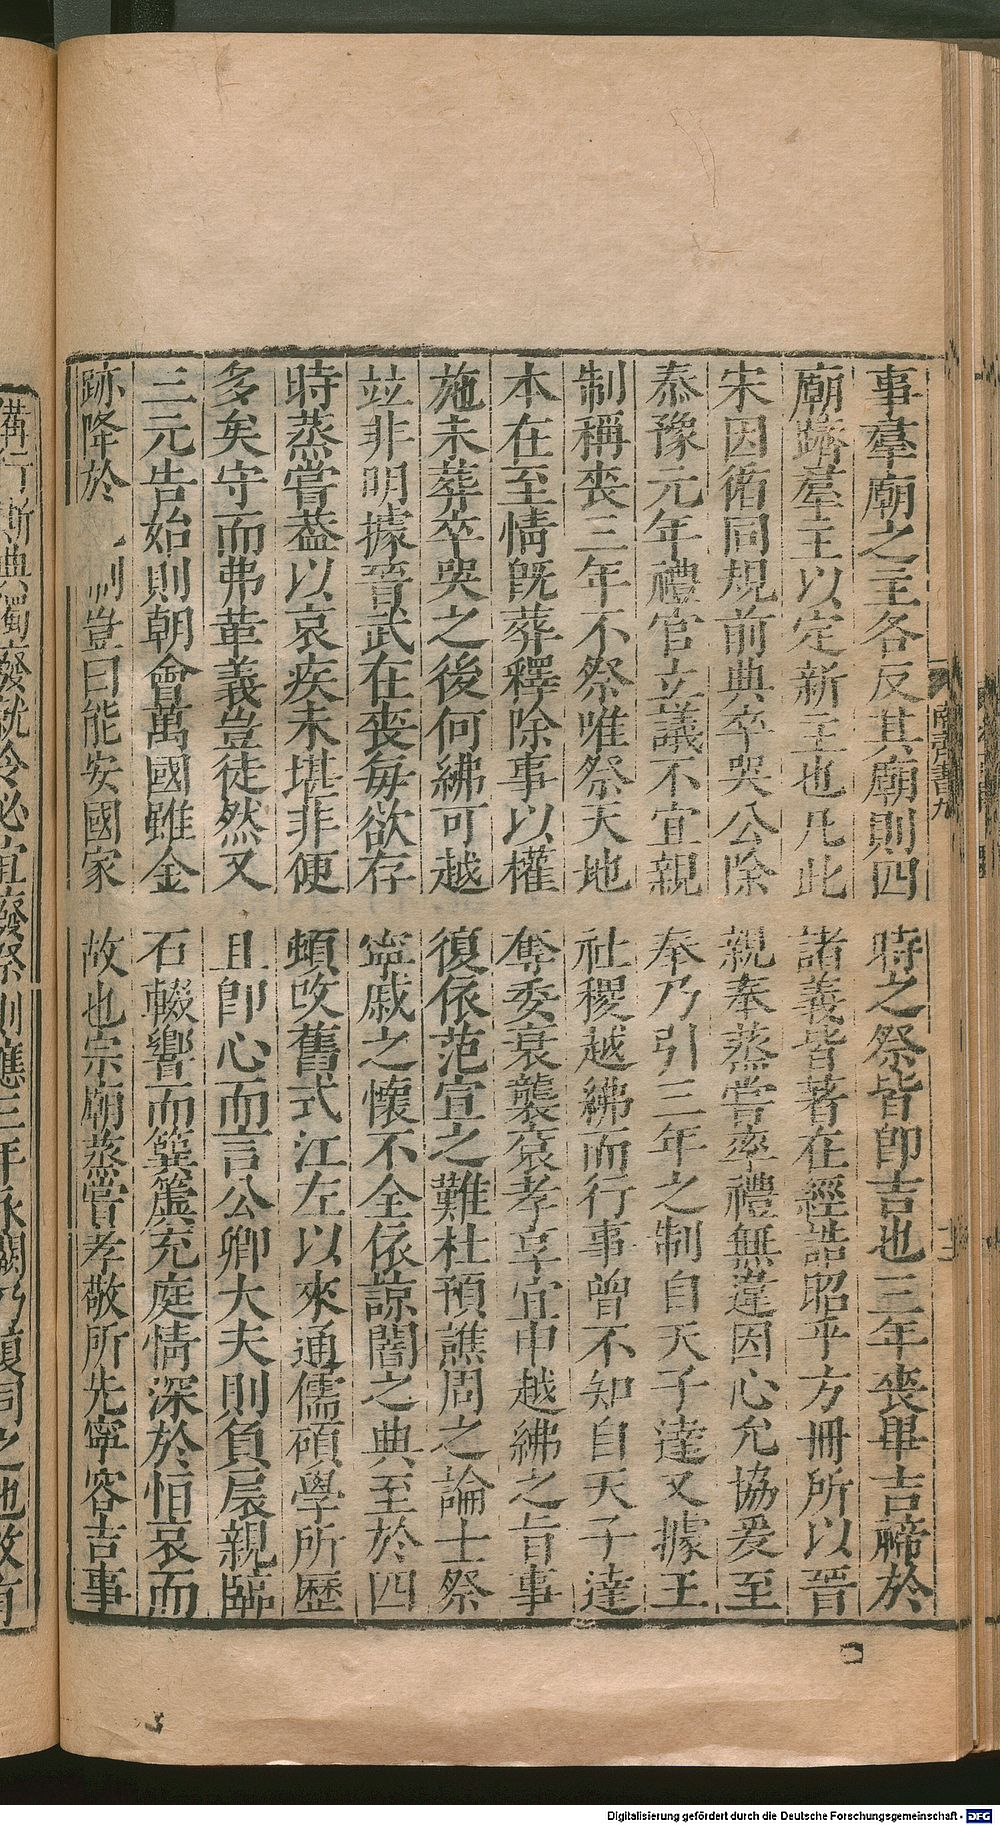 事羣廟之主各反其廟則四時之祭皆卽吉也三年喪畢吉禘於
廟躋羣主以定新主也凡此諸義皆著在經誥昭乎方冊所以晉
宋因循同規前典卒哭公除親奉蒸嘗率禮無違因心允協爰至
泰豫元年禮官立議不宜親奉乃引三年之制自天子達又據王
制稱喪三年不祭唯祭天地社稷越紼而行事曾不知自天子達
本在至情旣葬釋除事以權奪委衰襲袞孝享宜申越紼之旨事
施未葬卒哭之後何紼可越復依范宣之難杜預譙周之論士祭
並非明據晉武在喪每欲存寧戚之懷不全依諒闇之典至於四
時蒸嘗蓋以哀疾未堪非便頓改舊式江左以來通儒碩學所歷
多矣守而弗革義豈徒然又且卽心而言公卿大夫則負扆親臨
三元告始則朝會萬國雖金石輟響而簨簴充庭情深於恒哀而
跡降於 制豈曰能安國家故也宗廟蒸嘗孝敬所先寧容吉事
南齊書九
Digitalisierung gefördert durch die Deutsche Forschungsgemeinschaft - DFG